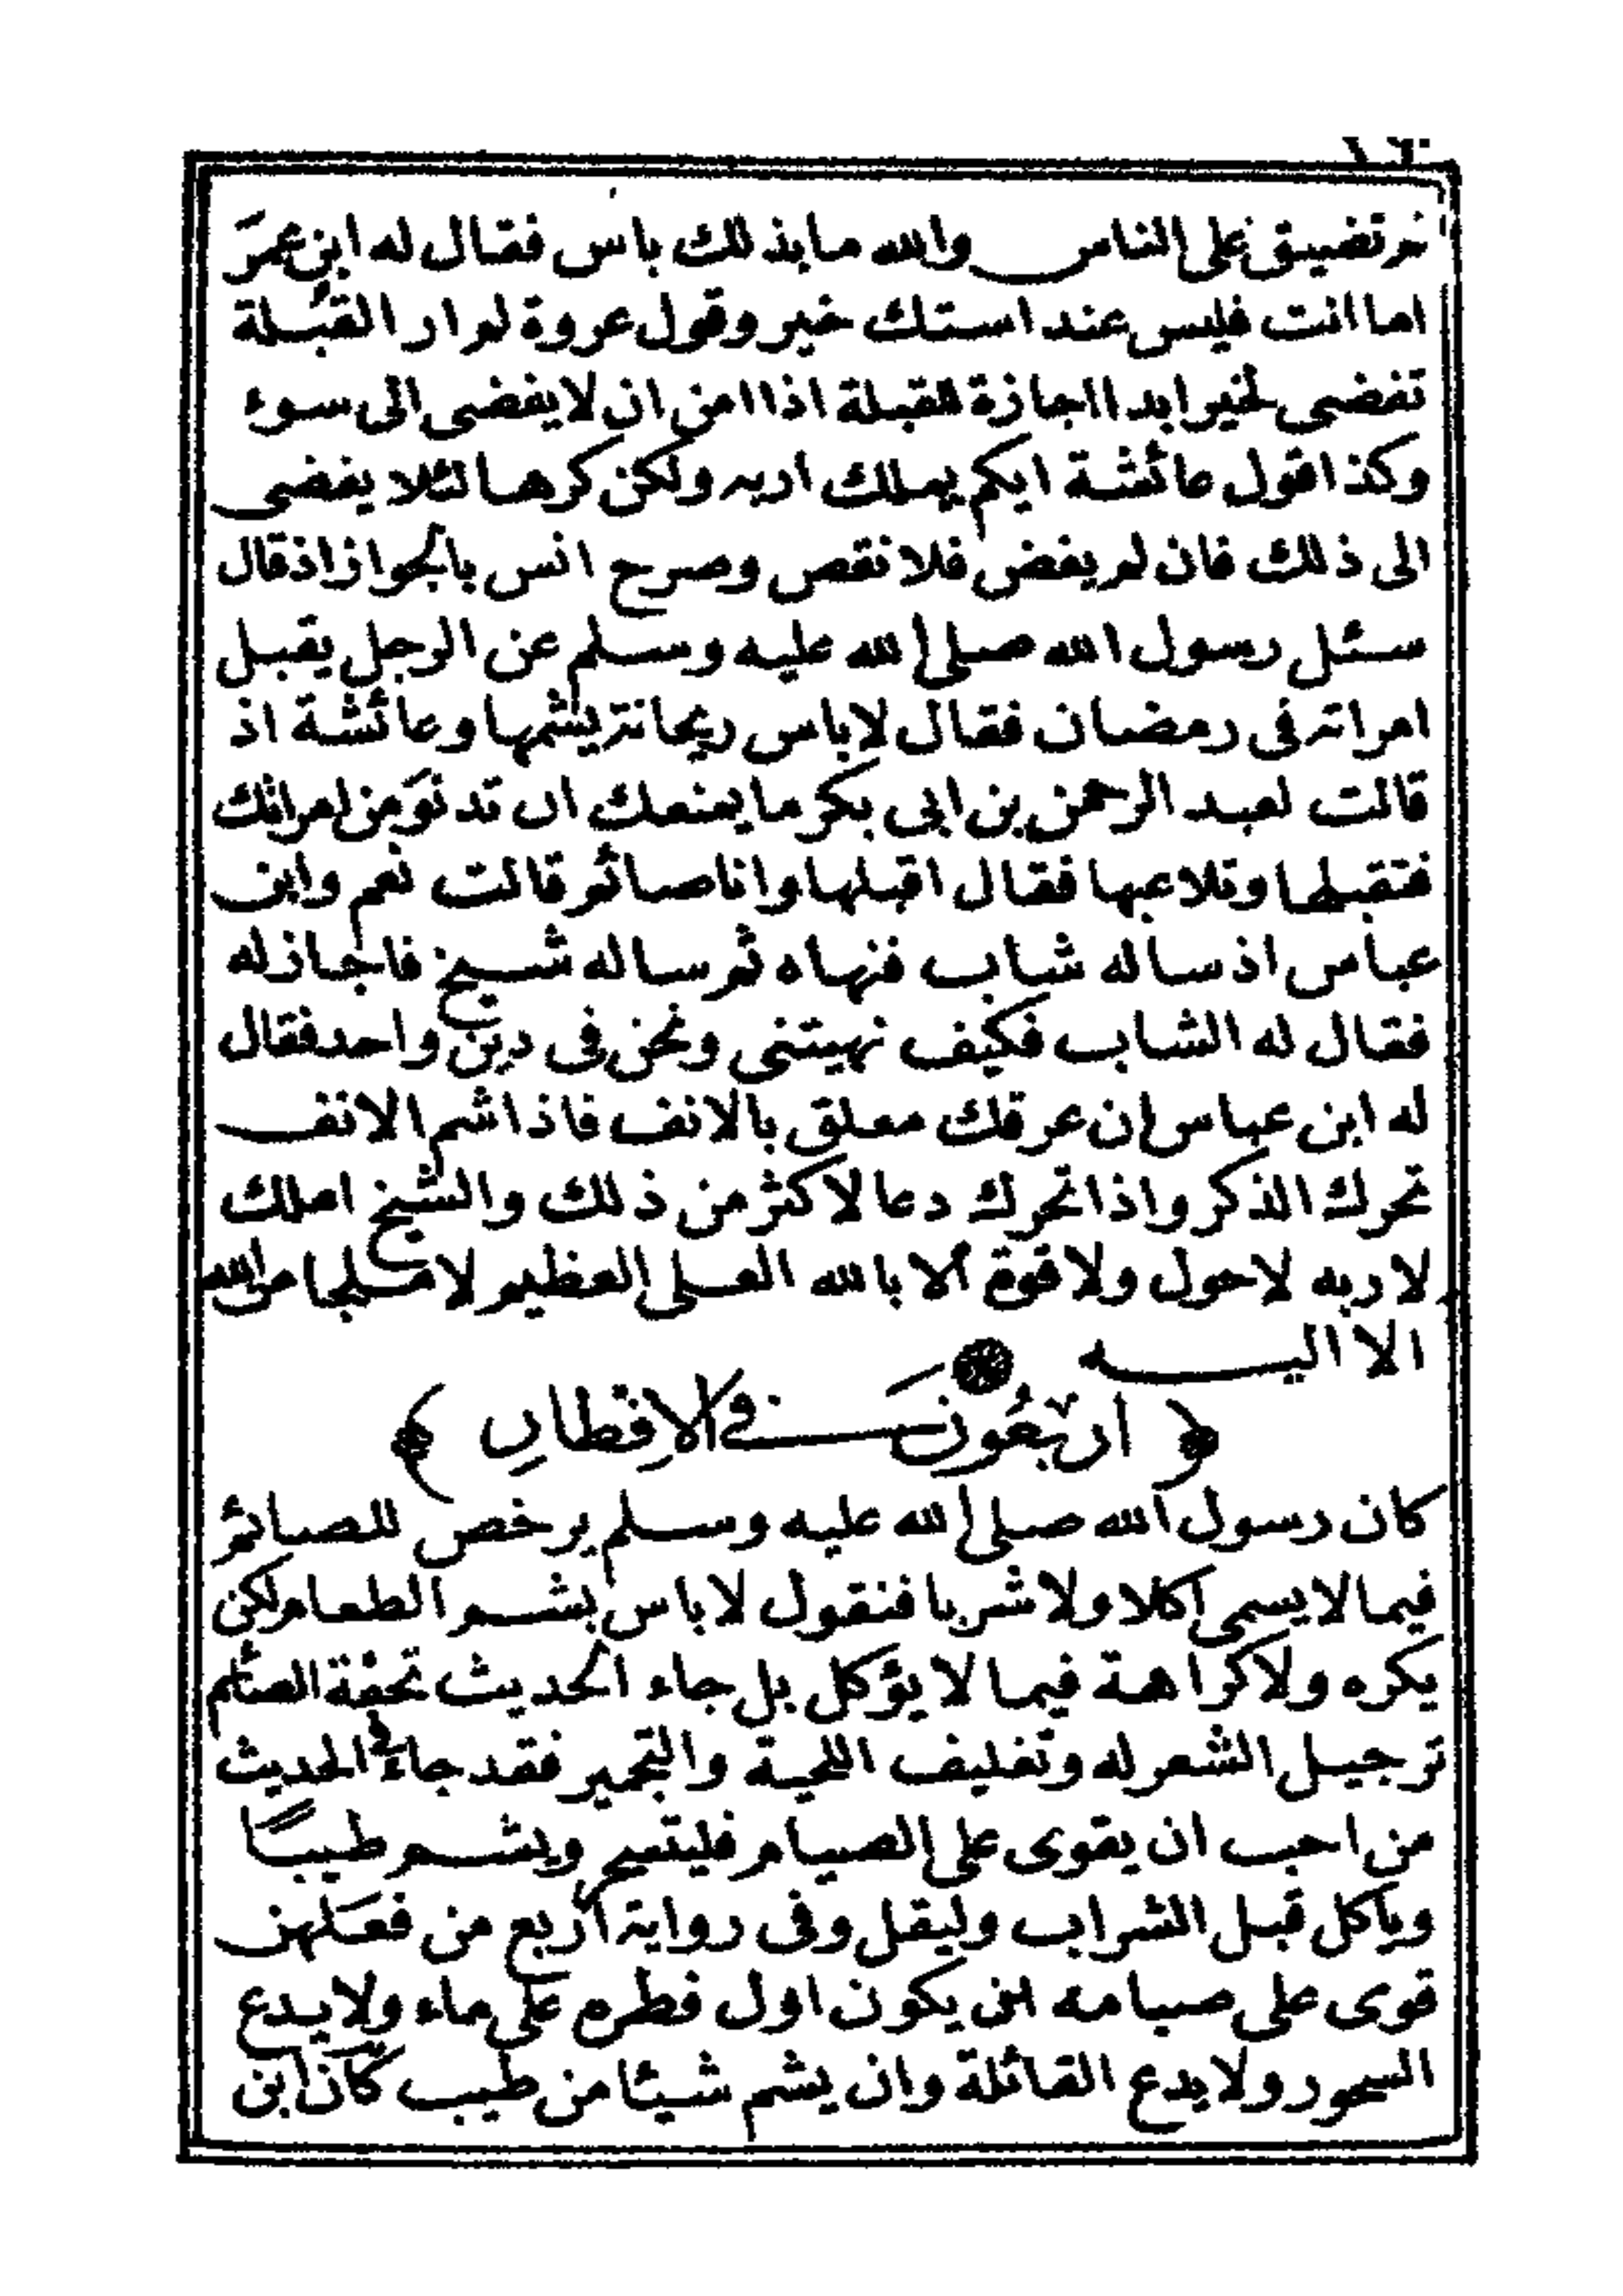 تضييق على الناس والله ما بذلك باس فقال له ابن عمر
اما انت فليس عند استك خير وقول عروة لم ار القبلة
تفضى لخير ابدا اجازة للقبلة اذا امن ان لا يفضى الى سوء
وكذا قول عائشة ايكم يملك اربه ولكن كرهها لئلا يفضى
الى ذلك فان لم يفض فلا نقص وصرح انس بالجواز اذ قال
سئل رسول الله صلى الله عليه وسلم عن الرجل يقبل
امراته فى رمضان فقال لا باس ريحانة يشمها وعائشة اذ
قالت لعبد الرحمن بن ابى بكر ما يمنعك ان تدنو من امراتك
فتقبلها وتلاعبها فقال اقبلها وانا صائم قالت نعم وابن
عباس اذ ساله شاب فنهاه ثم ساله شيخ فاجاز له
فقال له الشاب فكيف نهيتنى ونحن فى دين واحد فقال
له ابن عباس ان عرقك معلق بالانف فاذا شم الانف
تحرك الذكر واذا تحرك دعا لاكثر من ذلك والشيخ املك
لاربه لا حول ولا قوة الا بالله العلى العظيم لا ملجا من الله
الا اليه
﴿ اربعون فى الافطار ﴾
كان رسول الله صلى الله عليه وسلم يرخص للصائم
فيما لا يسمى اكلا ولا شربا فنقول لا باس بشم الطعام لكن
يكره ولا كراهة فيما لا يؤكل بل جاء الحديث تحفة الصائم
ترجيل الشعر له وتغليف اللحية والتجمير فقد جاء فى الحديث
من احب ان يقوى على الصيام فليتسحر ويشم طيبًا
وياكل قبل الشراب وليقل وفى رواية اربع من فعلهن
قوى على صيامه ان يكون اول فطره على ماء ولا يدع
السحور ولا يدع القائلة وان يشم شيئا من طيب كان ابن